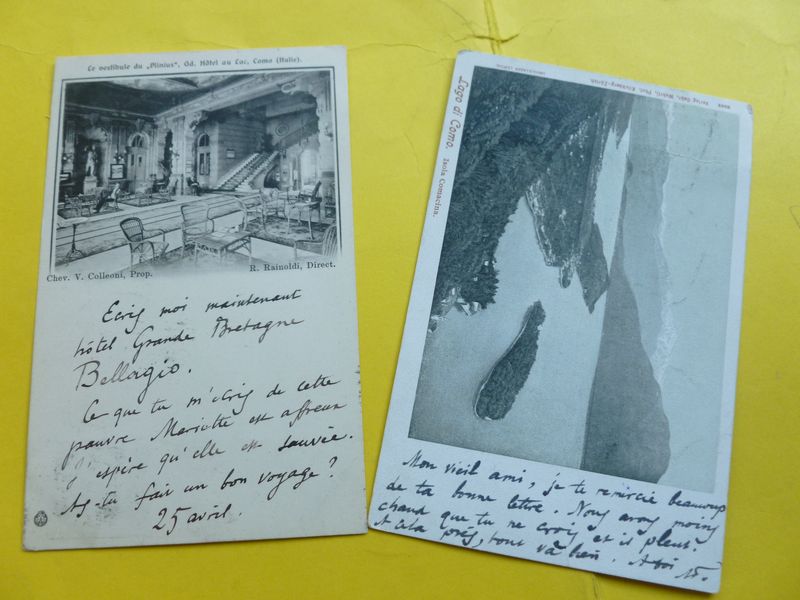 Le vestibule du „Plinius". Gd. Hôtel au Lac, Como (Italie).
Chev. V. Colleoni, Prop.
R. Rainoldi, Direct.
Ecris moi maintenant
hôtel Grande Bretagne
Bellagio.
Ce que tu m'écris de cette
pauvre Mariette est affreux
J'espère qu'elle est sauvée.
As-tu fait un bon voyage ?
25 avril.
Lago di Como. Isola Comacina.
Mon vieil ami, je te remercie beaucoup
de ta bonne lettre. Nous avons moins
chaud que tu ne crois et il pleut.
A cela près, tout va bien. A toi